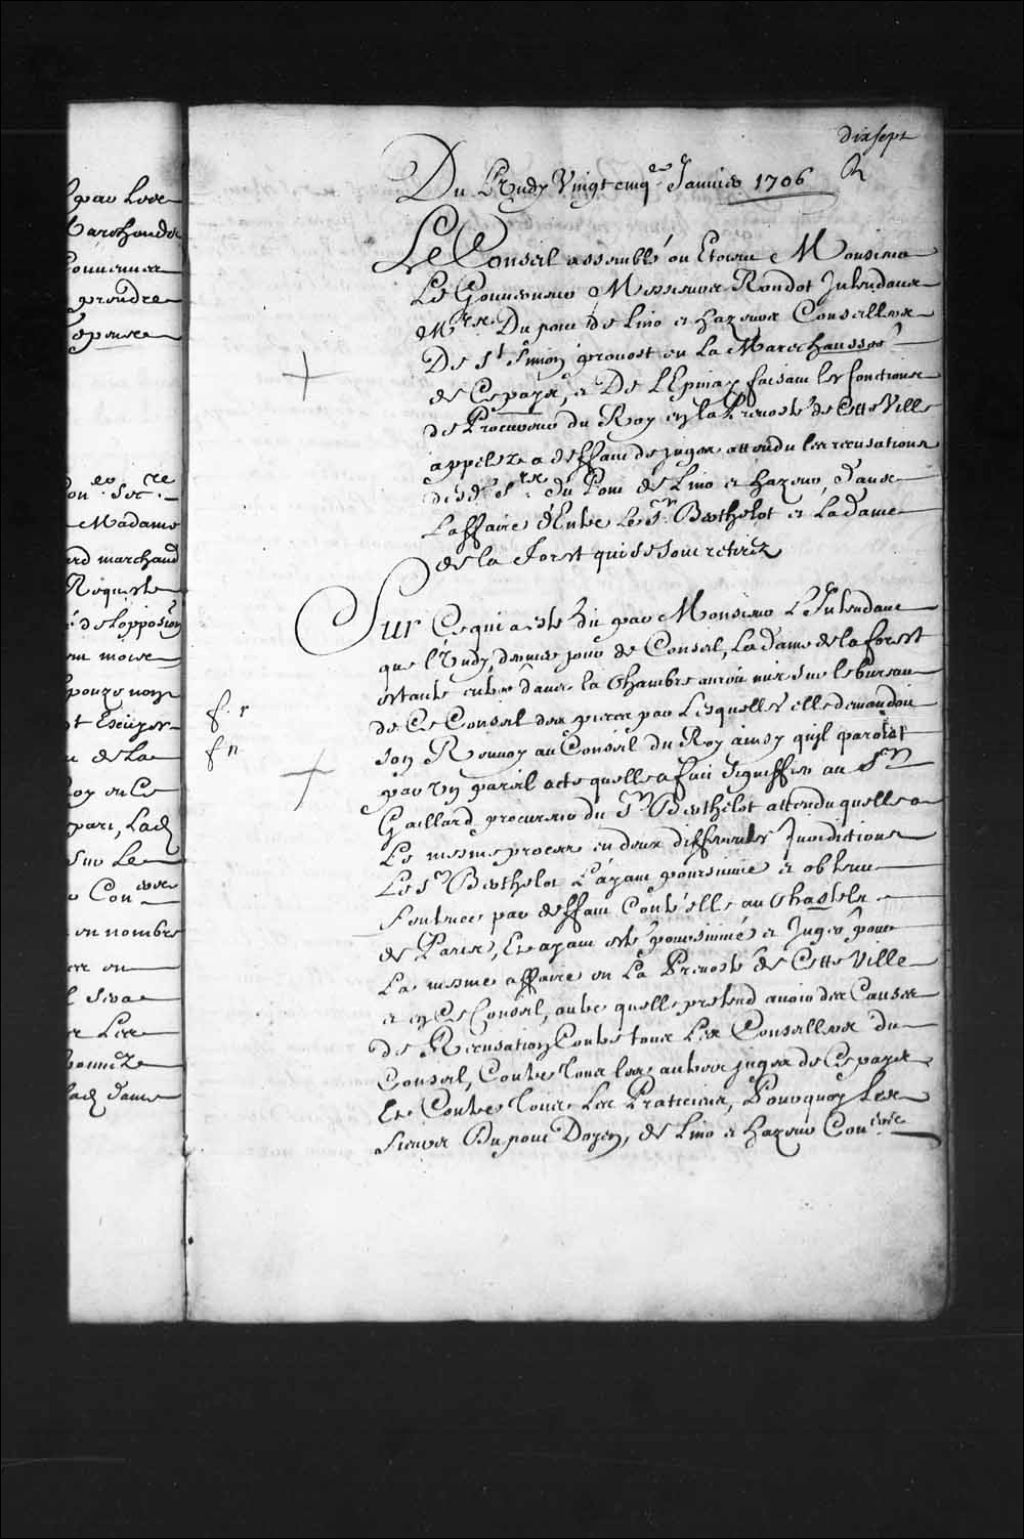 par lede
Marchande
Gouverneur
prendre
épouse
Madame
ard marchand
Requeste
de Lopposion
en moise
pouze nony
et Escuyer
u de La
oy en Ce
part, Ladt
Sur Le
en nombre
er en
l sera
Les
lad dame
dixsept
Du Lundy Vingtcinqe Janvier 1706
Le Conseil assemblé ou Estoient Monsieur
Le Gouverneur Messieurs Raudot Intendans
Mrs Du pont de Lino et hazeur Conseillers
De St Simon prevost en La Marechaussée
de Ce pays, et De LEpinay faisant les fonctions
de Procureur du Roy en la Prevosté de Cette Ville
appellez a deffaut de juges attendu les recusations
desd. Srs du Pont de Lino et hazeur, dans
Laffaire d'Entre le Sr Berthelot et La dame
de la forest qui se sont retirez
Sur Ce qui a esté dit par Monsieur L'Intendant
que Lundy dernier jour de Conseil, La dame de la forest
estante entrée dans la Chambre auroit mis sur le bureau
de Ce Conseil des pieces par Lesquelles elle demandoit
son Renvoy au Conseil du Roy ainsy quil paroist
par un pareil acte quelle a fait signiffier au Sr
Gaillard procureur du Sr Berthelot attendu quelle a
Le mesme proces en deux differentes Jurisdictions
Le Sr Berthelot L'ayant poursuivie et obtenu
sentence par deffaut Contr'elle au Chastelet
de Paris, Et ayant esté poursuivie et Jugée pour
La mesme affaire en La Prevosté de Cette Ville
et en Ce Conseil, outre quelle pretend avoir des Causes
de Recusation Contre tous Les Conseillers du
Conseil, Contre tous les autres juges de Ce pays
Et Contre tous Les Praticiens, Pourquoy Les
sieurs Dupont Doyen, de Lino et hazeur Coners